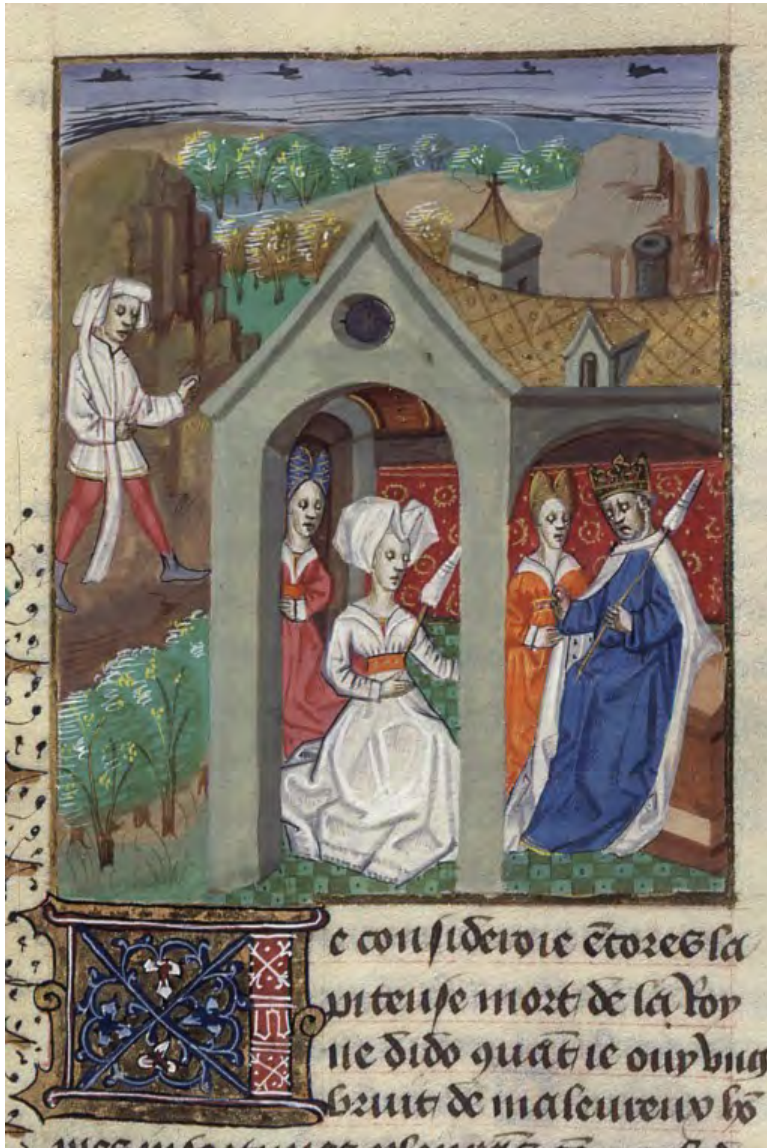 Ie consideroie ẽcores la
piteuse mort de la Roy
ne dido quãt ie ouy vng
bruit de maleureux hõ